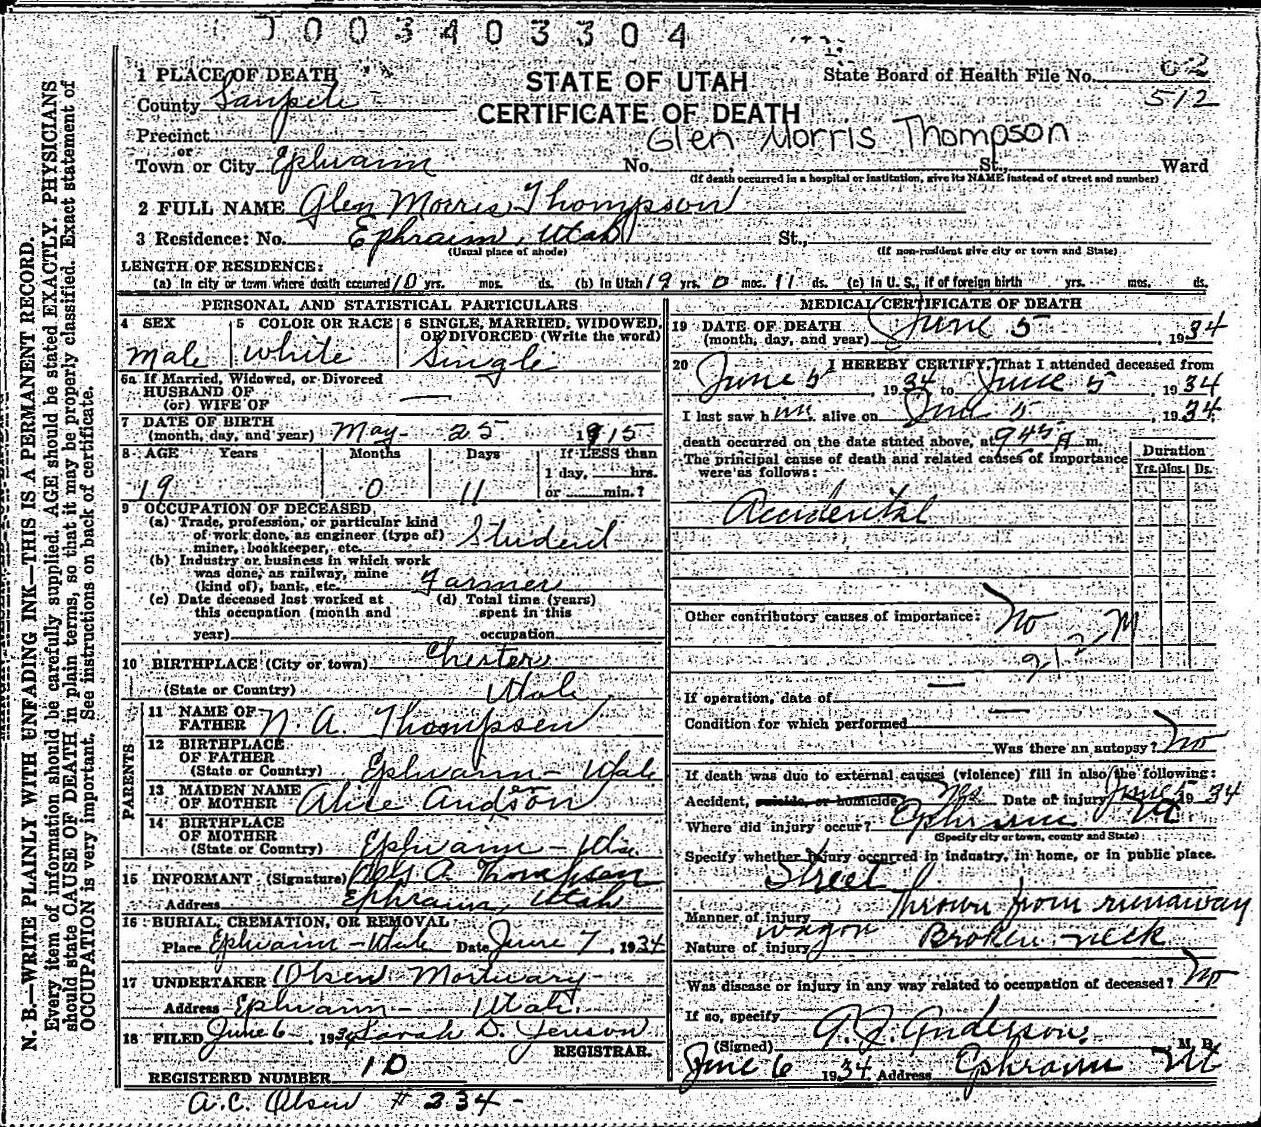 0 0 3 4 0 3 3 0 4
1 PLACE OF DEATH
STATE OF UTAH
State Board of Health File No. 62
County Sanpete
CERTIFICATE OF DEATH
512
Precinct
Glen Morris Thompson
or
Town or City Ephraim No. , St., Ward
(If death occurred in a hospital or institution, give its NAME instead of street and number)
2 FULL NAME Glen Morris Thompson
3 Residence: No. Ephraim, Utah St.,
(Usual place of abode) (If non-resident give city or town and State)
LENGTH OF RESIDENCE:
(a) In city or town where death occurred 10 yrs. mos. ds. (b) In Utah 19 yrs. 0 mos. 11 ds. (c) In U. S., if of foreign birth yrs. mos. ds.
PERSONAL AND STATISTICAL PARTICULARS
4 SEX 5 COLOR OR RACE 6 SINGLE, MARRIED, WIDOWED,
OR DIVORCED (Write the word)
Male White Single
6a If Married, Widowed, or Divorced
HUSBAND OF
(or) WIFE OF —
7 DATE OF BIRTH
(month, day, and year) May 25 1915
8 AGE Years Months Days If LESS than
1 day, hrs.
19 0 11 or min.?
9 OCCUPATION OF DECEASED
(a) Trade, profession, or particular kind
of work done, as engineer (type of)
miner, bookkeeper, etc. Student
(b) Industry or business in which work
was done, as railway, mine
(kind of), bank, etc. Farmer
(c) Date deceased last worked at (d) Total time (years)
this occupation (month and spent in this
year) occupation
10 BIRTHPLACE (City or town) Chester
(State or Country) Utah
PARENTS
11 NAME OF
FATHER N. A. Thompson
12 BIRTHPLACE
OF FATHER
(State or Country) Ephraim - Utah
13 MAIDEN NAME
OF MOTHER Alice Anderson
14 BIRTHPLACE
OF MOTHER
(State or Country) Ephraim - Utah
15 INFORMANT (Signature) A. Thompson
Address Ephraim, Utah
16 BURIAL, CREMATION, OR REMOVAL
Place Ephraim - Utah Date June 7, 1934
17 UNDERTAKER Olsen Mortuary
Address Ephraim - Utah.
18 FILED June 6, 1934 Sarah D. Jenson
REGISTRAR.
REGISTERED NUMBER 10
A.C. Olsen # 234 -
MEDICAL CERTIFICATE OF DEATH
19 DATE OF DEATH
(month, day, and year) June 5 1934
20 I HEREBY CERTIFY, That I attended deceased from
June 5, 1934 to June 5, 1934
I last saw him alive on June 5, 1934
death occurred on the date stated above, at 9 45 A m.
The principal cause of death and related causes of importance
were as follows:
Duration
Yrs. Mos. Ds.
Accidental
Other contributory causes of importance: No
If operation, date of —
Condition for which performed —
Was there an autopsy? No
If death was due to external causes (violence) fill in also the following:
Accident, suicide, or homicide yes Date of injury June 5 1934
Where did injury occur? Ephraim Ut
(Specify city or town, county and State)
Specify whether injury occurred in industry, in home, or in public place.
Street
Manner of injury Thrown from runaway
wagon
Nature of injury Broken neck
Was disease or injury in any way related to occupation of deceased? No
If so, specify
(Signed) A. J. Anderson, M. D.
June 6 1934 Address Ephraim Ut
N. B.—WRITE PLAINLY WITH UNFADING INK—THIS IS A PERMANENT RECORD.
Every item of information should be carefully supplied. AGE should be stated EXACTLY. PHYSICIANS
should state CAUSE OF DEATH in plain terms, so that it may be properly classified. Exact statement of
OCCUPATION is very important. See instructions on back of certificate.